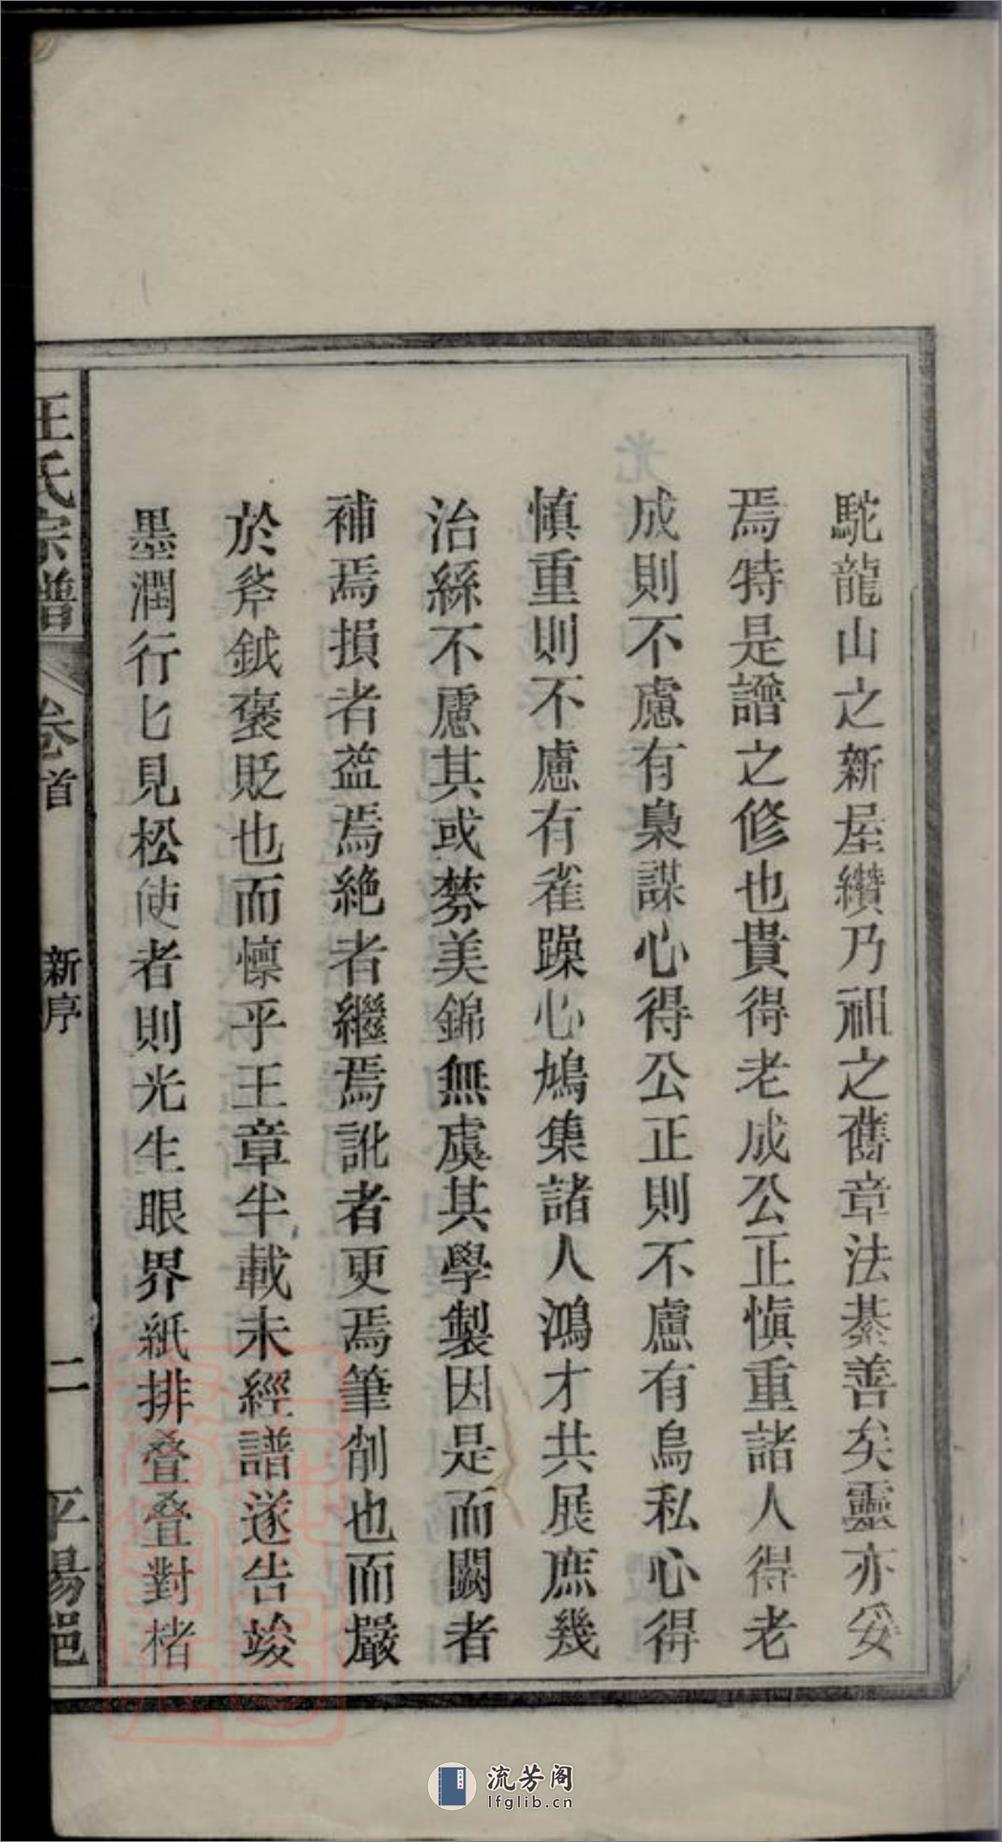 駝龍山之新屋纘乃祖之舊章法綦善矣靈亦妥
焉特是譜之修也貴得老成公正慎重諸人得老
成則不慮有梟謀心得公正則不慮有烏私心得
慎重則不慮有雀躁心鳩集諸人鴻才共展庶幾
治絲不慮其或棼美錦無虞其學製因是而闕者
補焉損者益焉絶者繼焉訛者更焉筆削也而嚴
於斧鉞褒貶也而懔乎王章半載未經譜遂告竣
墨潤行匕見松使者則光生眼界紙排叠叠對楮
汪氏宗譜 卷首 新序 二 平陽邑
流芳阁
lfglib.cn